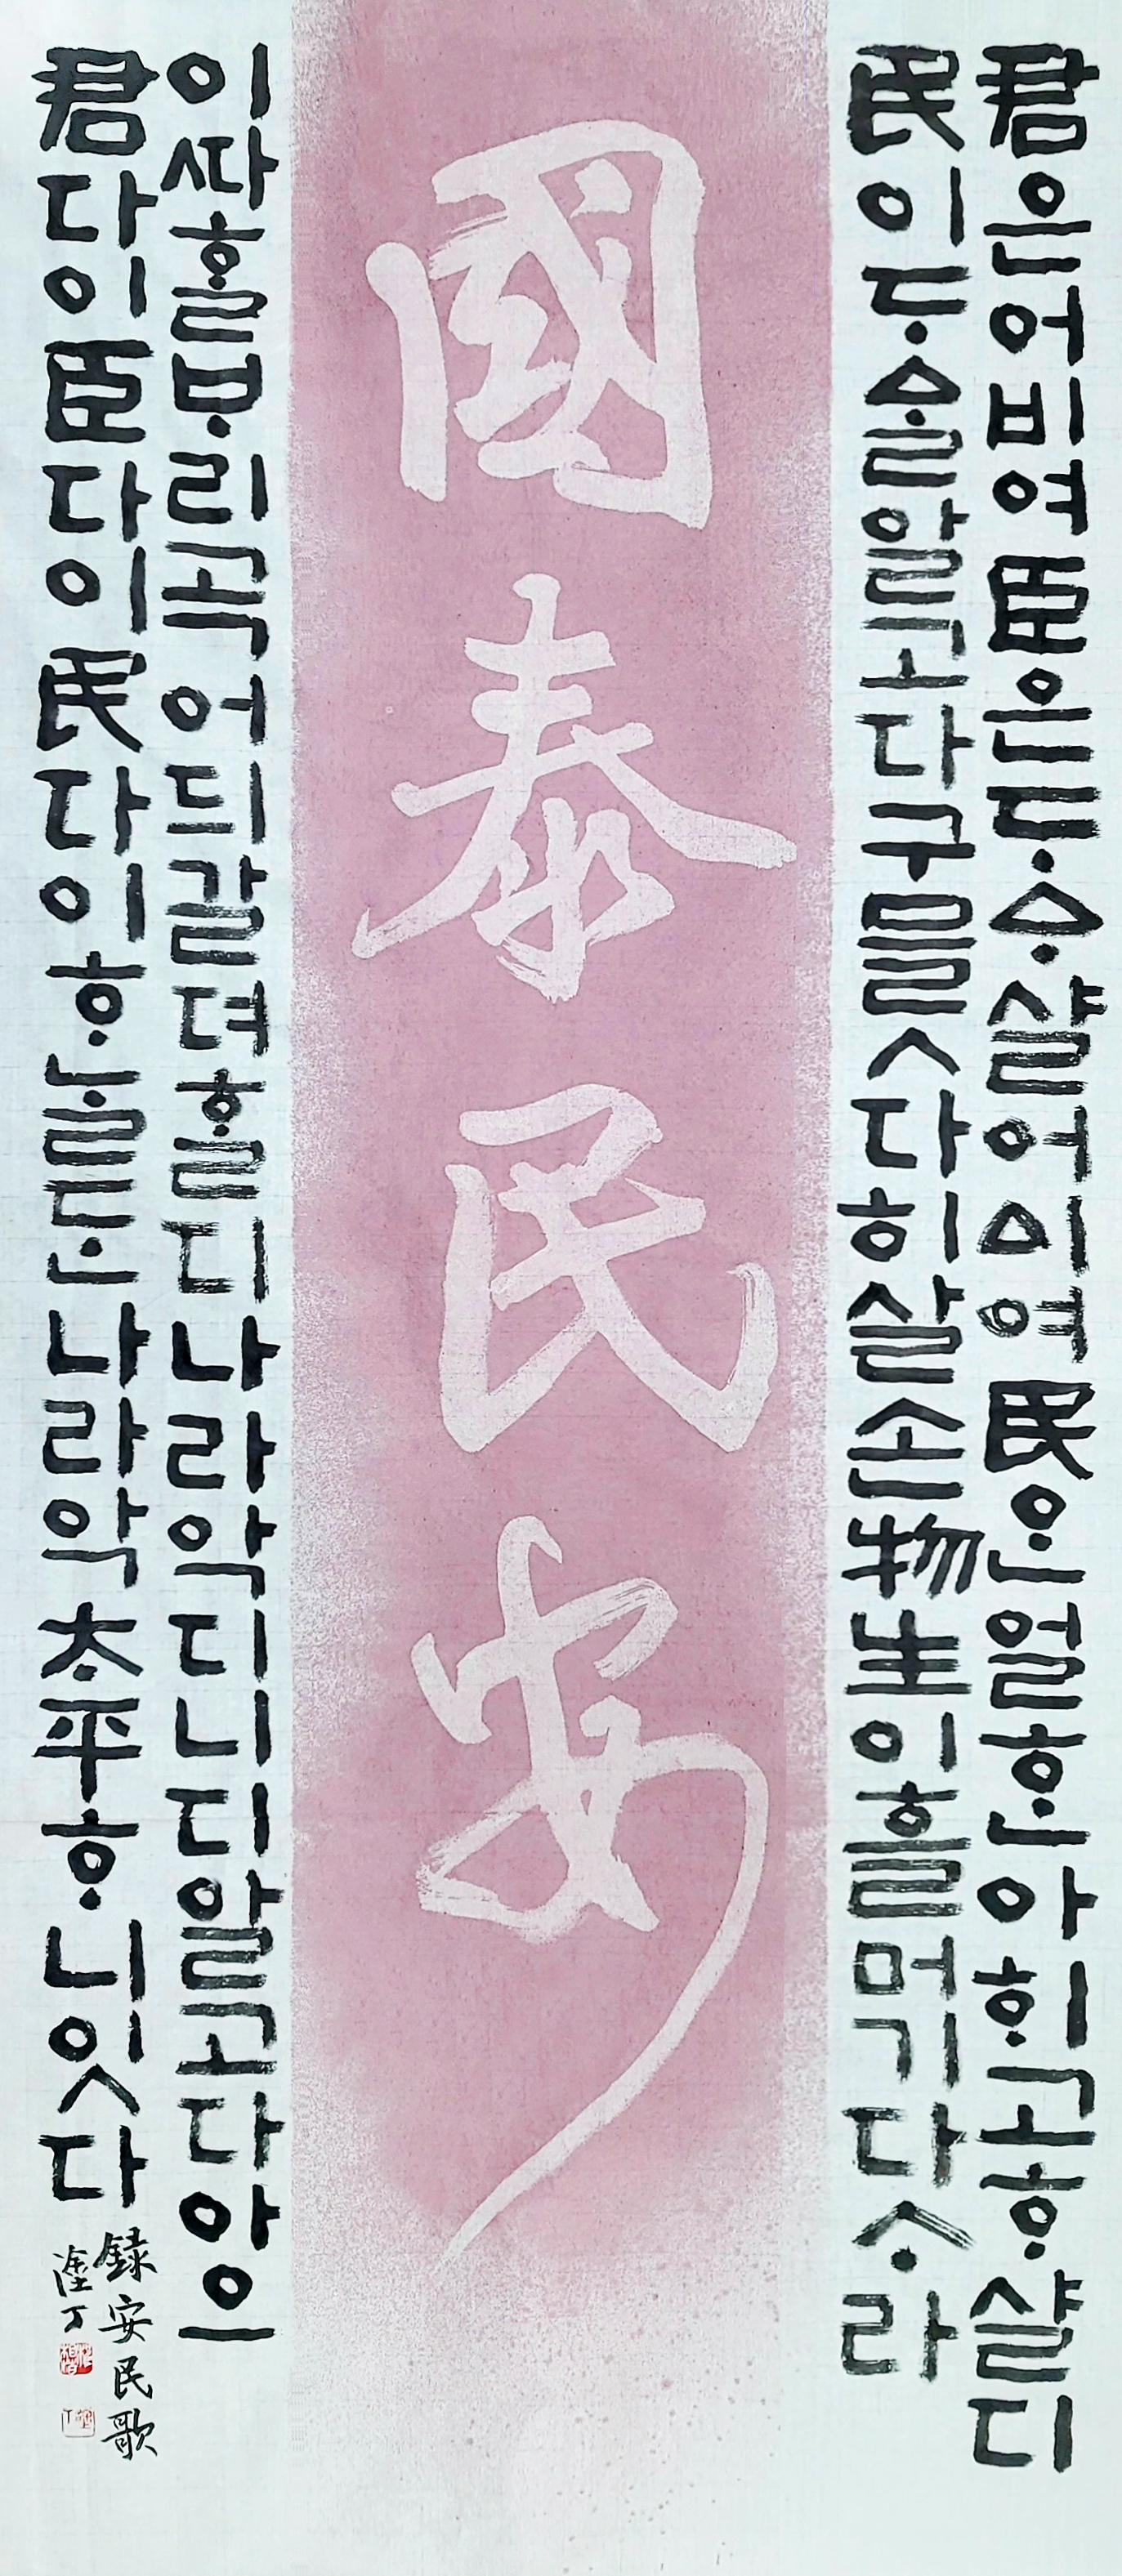 君은어비여臣은ᄃᆞᅀᆞ샬어ᅀᅵ여民ᄋᆞᆫ얼ᄒᆞᆫ아ᄒᆡ고ᄒᆞ샬디
民이ᄃᆞᅀᆞᆯ알고다구믈ㅅ다히살손物生이흘머기다ᄉᆞ라
國泰民安
이ᄯᅡᄒᆞᆯᄇᆞ리곡어듸갈뎌ᄒᆞᆯ디나라악디니디알고다아으
君다이臣다이民다이ᄒᆞᄂᆞᆯᄃᆞᆫ나라악太平ᄒᆞ니잇다
録安民歌
塗丁